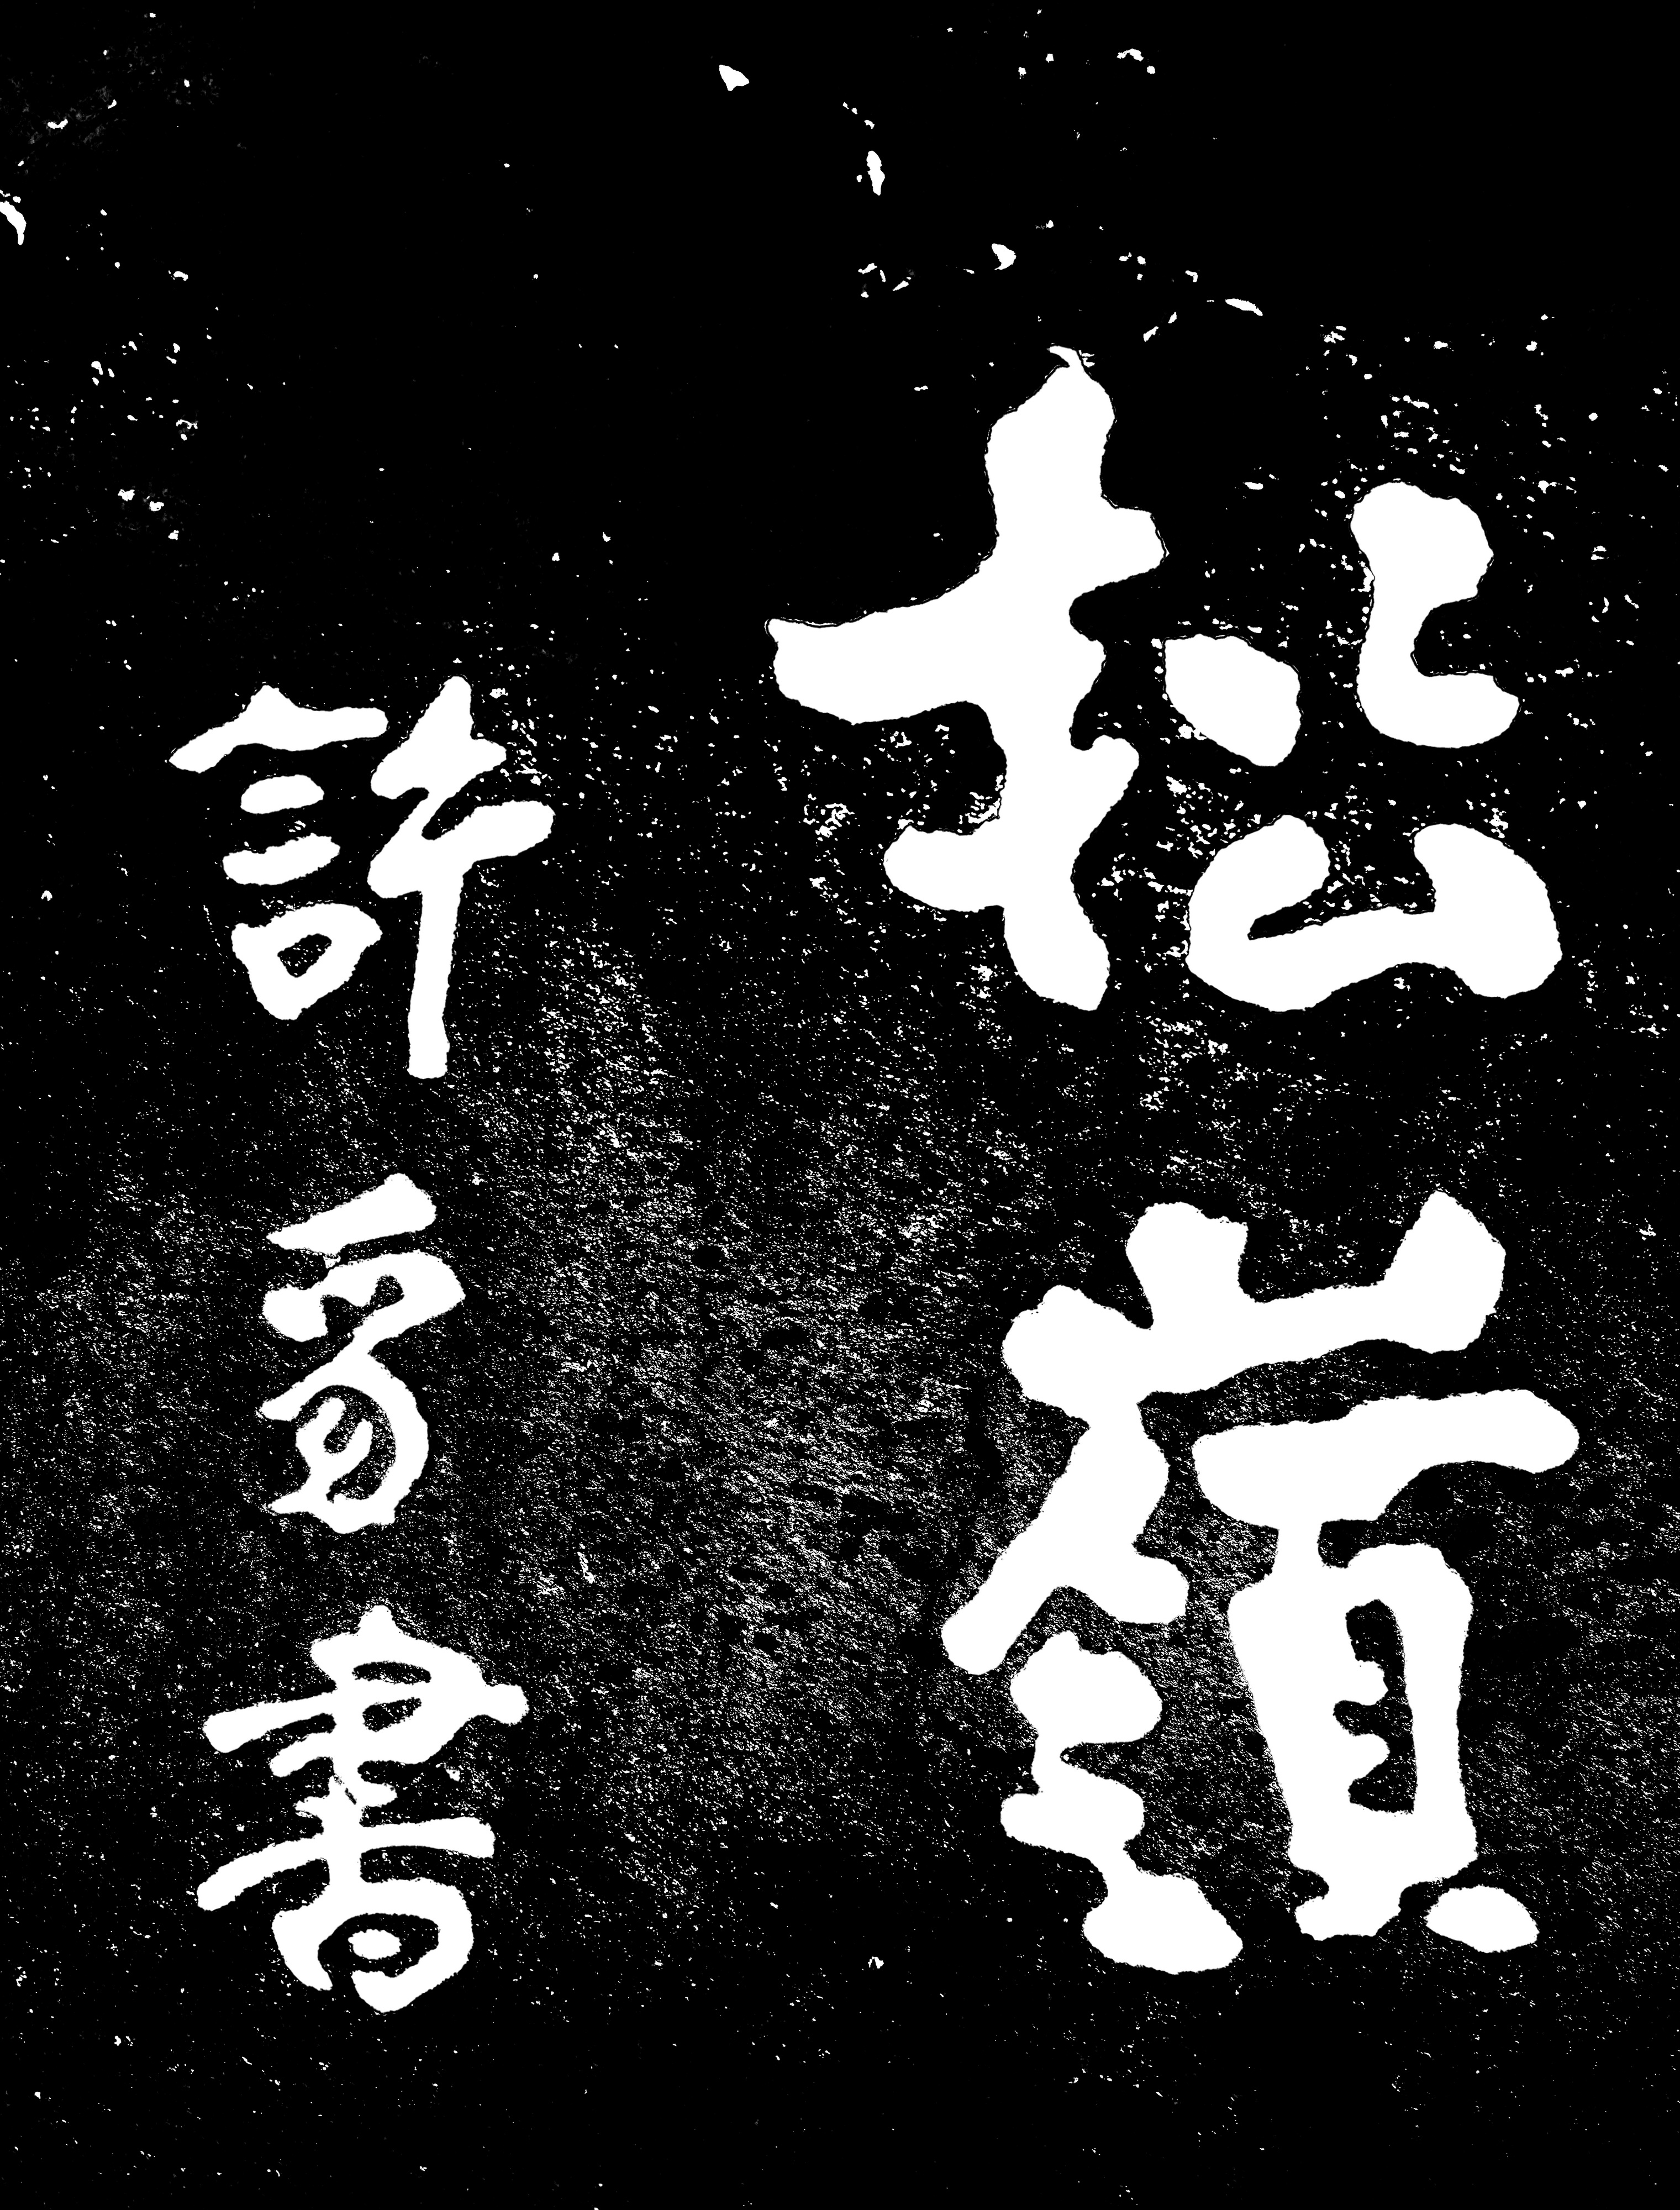 松嶺
許豸書